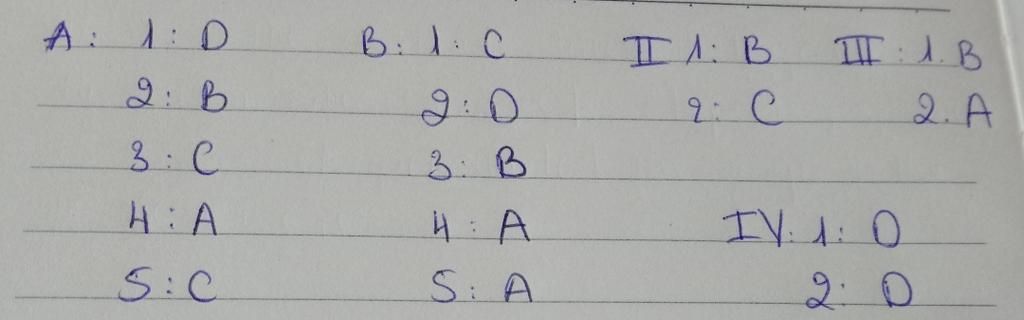 A: 1: D B: 1: C II 1: B III: 1. B
2: B 2: D 2: C 2. A
3: C 3: B
4: A 4: A IV: 1: D
5: C 5: A 2: D